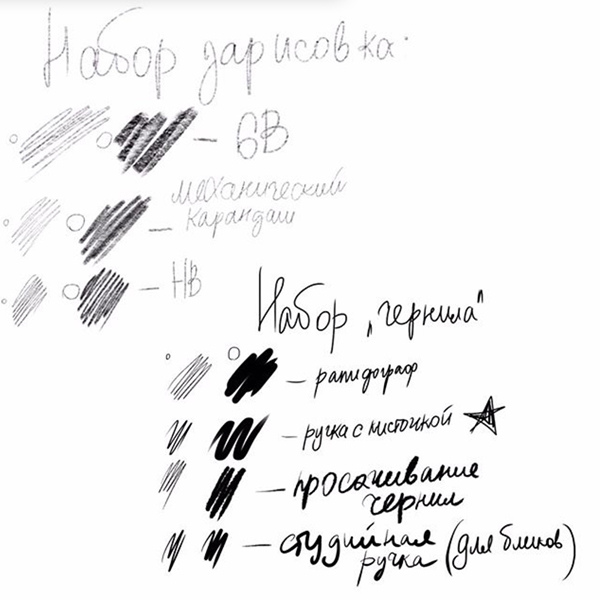 Набор зарисовка.
— 6B
— Механический
карандаш
— HB
Набор „чернила"
— рапидограф
— ручка с кисточкой
— просачивание
чернил
— студийная
ручка (для бликов)